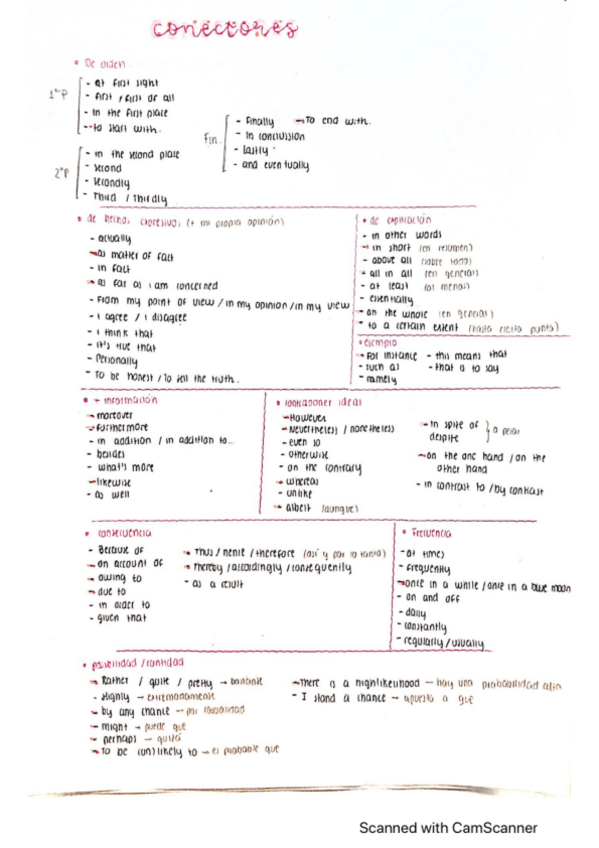 conectores
• De orden
1er P
- at first sight
- first / first of all
- in the first place
- to start with.
2º P
- in the second place
- second
- secondly
- Third / Thirdly
Fin.
- Finally → To end with.
- in conclussion
- lastly
- and eventually
• de hechos, expresivos, (+ mi propia opinión)
- actually
- as matter of fact
- in fact
- as far as i am concerned
- From my point of view / in my opinion / in my view
- i agree / i disagree
- i think that
- it's true that
- Personally
- To be honest / To tell the truth.
• de explicación
- in other words
- in short (en resumen)
- above all (sobre todo)
- all in all (en general)
- at least (al menos)
- essentially
- on the whole (en general)
- to a certain extent (hasta cierto punto)
• ejemplo
- For instance - this means that
- such as - that is to say
- namely
• + información
- moreover
- furthermore
- in addition / in addition to...
- besides
- what's more
- likewise
- as well
• contraponer ideas
- However
- Nevertheless / nonetheless
- even so
- otherwise
- on the contrary
- whereas
- unlike
- albeit (aunque)
- in spite of } a pesar
despite
- on the one hand / on the
other hand
- in contrast to / by contrast
• consecuencia
- Because of
- on account of
- owing to
- due to
- in order to
- given that
- Thus / hence / therefore (así y por lo tanto)
- Thereby / accordingly / consequently
- as a result
• Frecuencia
- at times
- frequently
- once in a while / once in a blue moon
- on and off
- daily
- constantly
- regularly / usually
• posibilidad / cantidad
- Rather / quite / pretty → bastante
- Highly → extremadamente
- by any chance → por casualidad
- might → puede que
- perhaps → quizá
- To be (un)likely to → es probable que
- There is a highlikelihood → hay una probabilidad alta
- I stand a chance → apuesto a que
Scanned with CamScanner